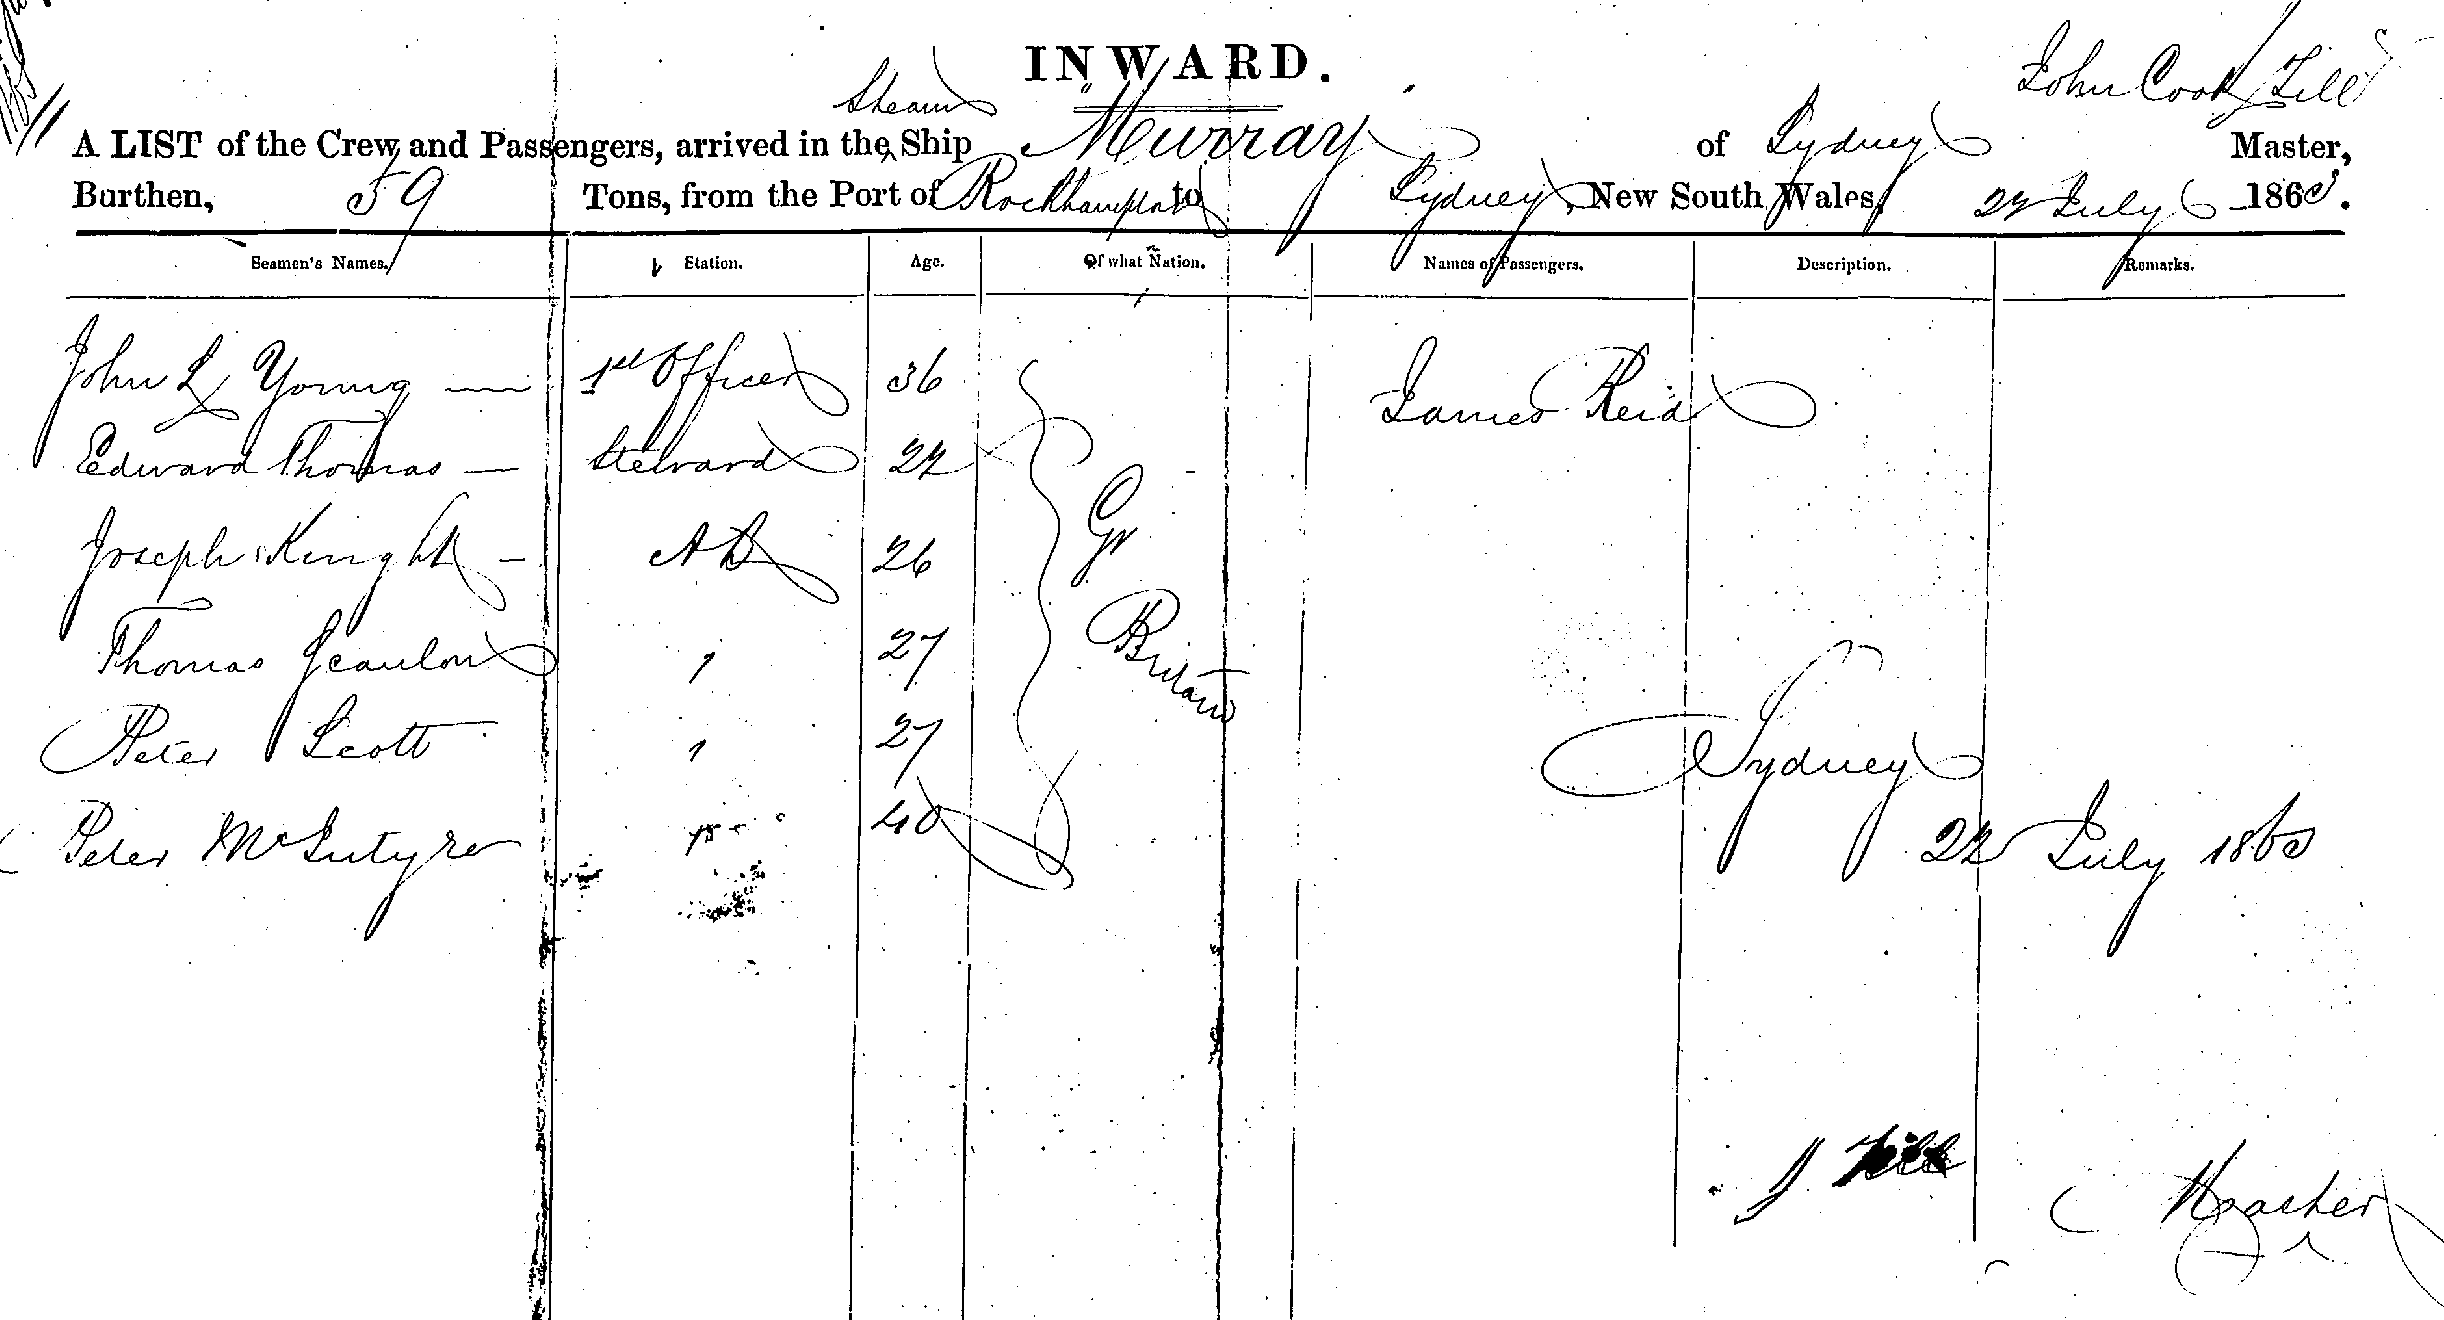 INWARD.
Steam
John Cook Till
A LIST of the Crew and Passengers, arrived in the Ship Murray of Sydney Master,
Burthen, 59 Tons, from the Port of Rockhampton to Sydney, New South Wales, 22 July 1860.
Seamen's Names. Station. Age. Of what Nation. Names of Passengers. Description. Remarks.
John L Young — 1st Officer 36 James Reid
Edward Thomas — Steward 22
Joseph Knight — AB 26 Gr
Thomas Scanlon " 27 Britain
Peter Scott " 27 Sydney
Peter McIntyre 40 22 July 1860
J Till
Master